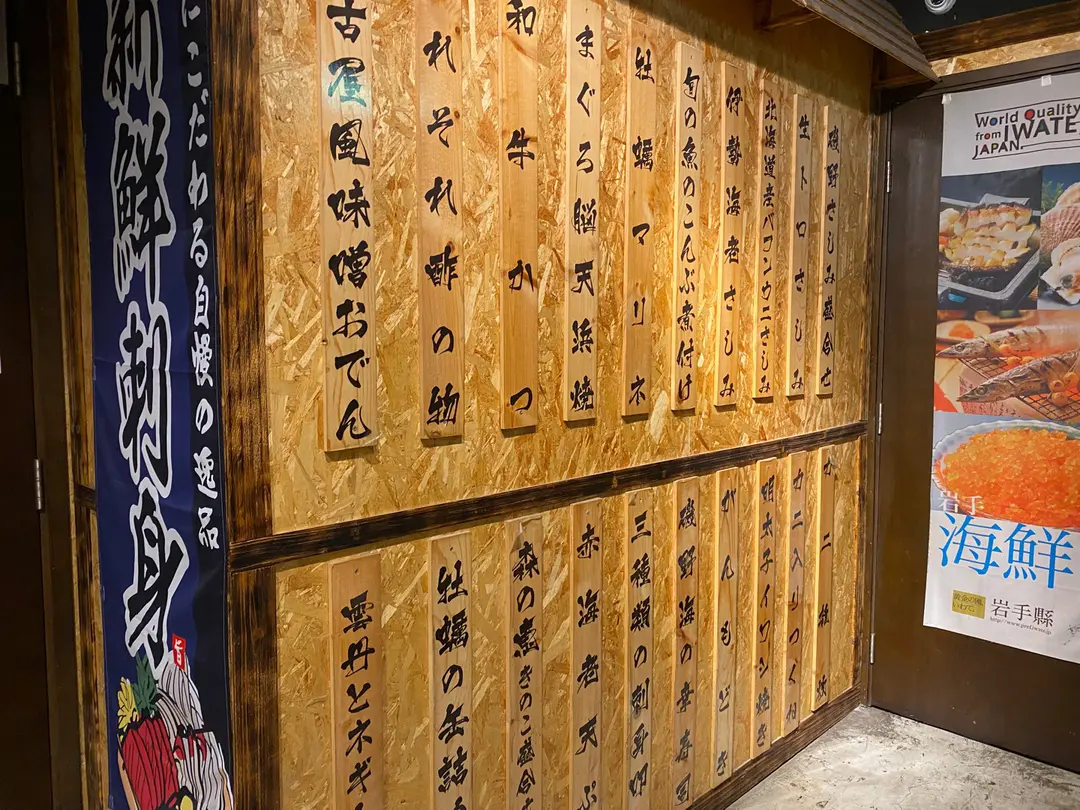 にこだわる自慢の逸品
新鮮刺身
旨
磯野さしみ盛合せ
生トロさしみ
北海道産バフンウニさしみ
伊勢海老さしみ
旬の魚のこんぶ煮付け
牡蠣マリネ
まぐろ脳天浜焼
和牛かつ
れそれ酢の物
古屋風味噌おでん
カニ入りつくね
明太子イワシ焼き
がんもどき
磯野海の幸寿司
三種類の刺身
赤海老天ぷ
森の恵きのこ盛合
牡蠣の缶詰
雲丹とネギ
World Quality
from IWATE
JAPAN.
岩手
海鮮
黄金の國、
いわて。
岩手縣